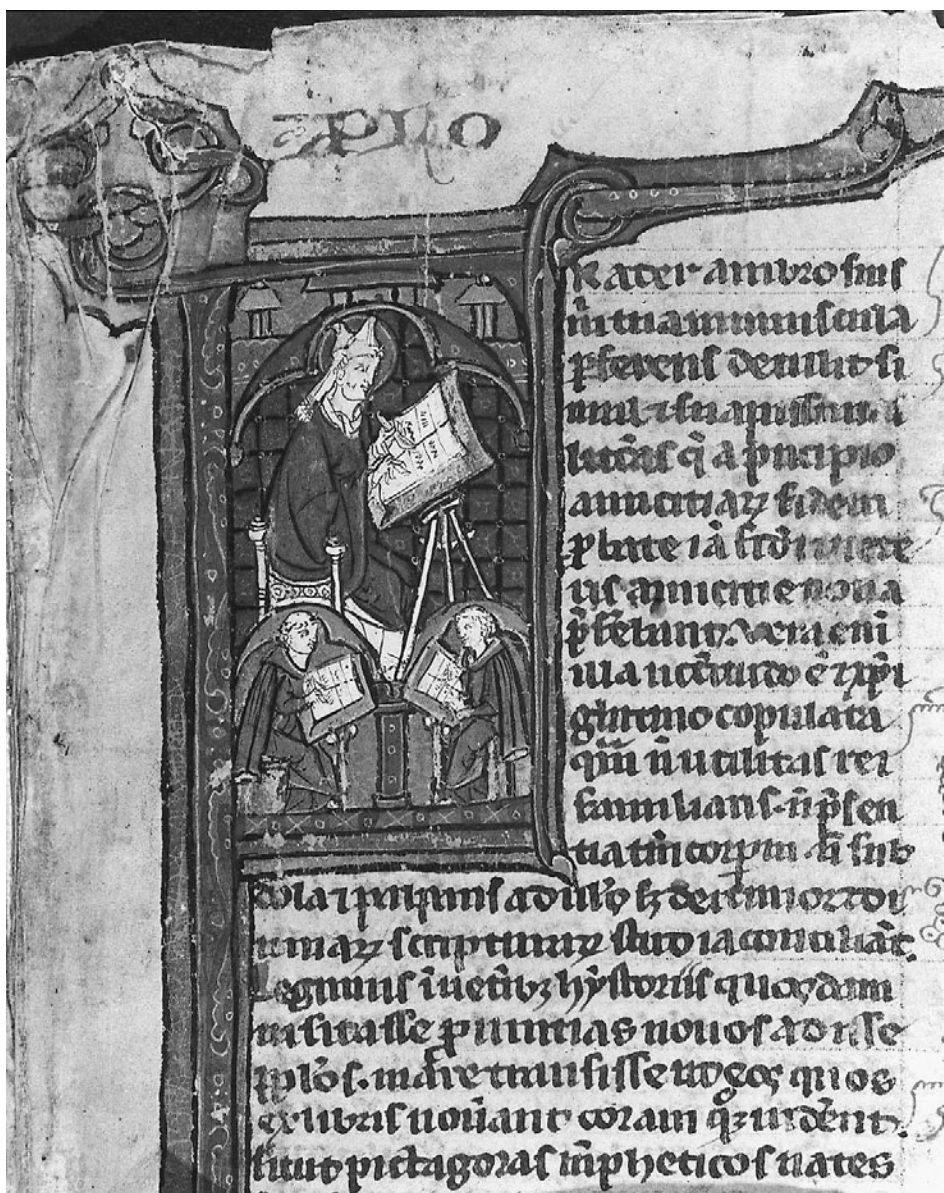 PRO
Rater ambrosius
m̄ tua munuscula
ꝑferens detulit si
mul ⁊ suauissimas
lit̄as q̄ a pͥncipio
amicitiaꝝ fidem
ꝓbate iā fidei ⁊ uete
ris amicitie noua
p̄ferebant. Uera eni
illa necessitudo ē ⁊ xp̄i
glutino copulata
quā n̄ utilitas rei
familiaris. n̄ p̄sen
tia tm̄ corpꝝ n̄ sub
dola ⁊ palpans adulat̄o sꝫ dei timor ⁊ di
uinaꝝ scripturaꝝ studia conciliāt.
Legimus ī uetībꝫ hystoriis quosdam
lustrasse ꝓuintias nouos adisse
ppl̓os. maria transisse ut eos quos
ex libris nouerant coram qꝫ uiderent.
sicut pictagoras mēpheticos uates